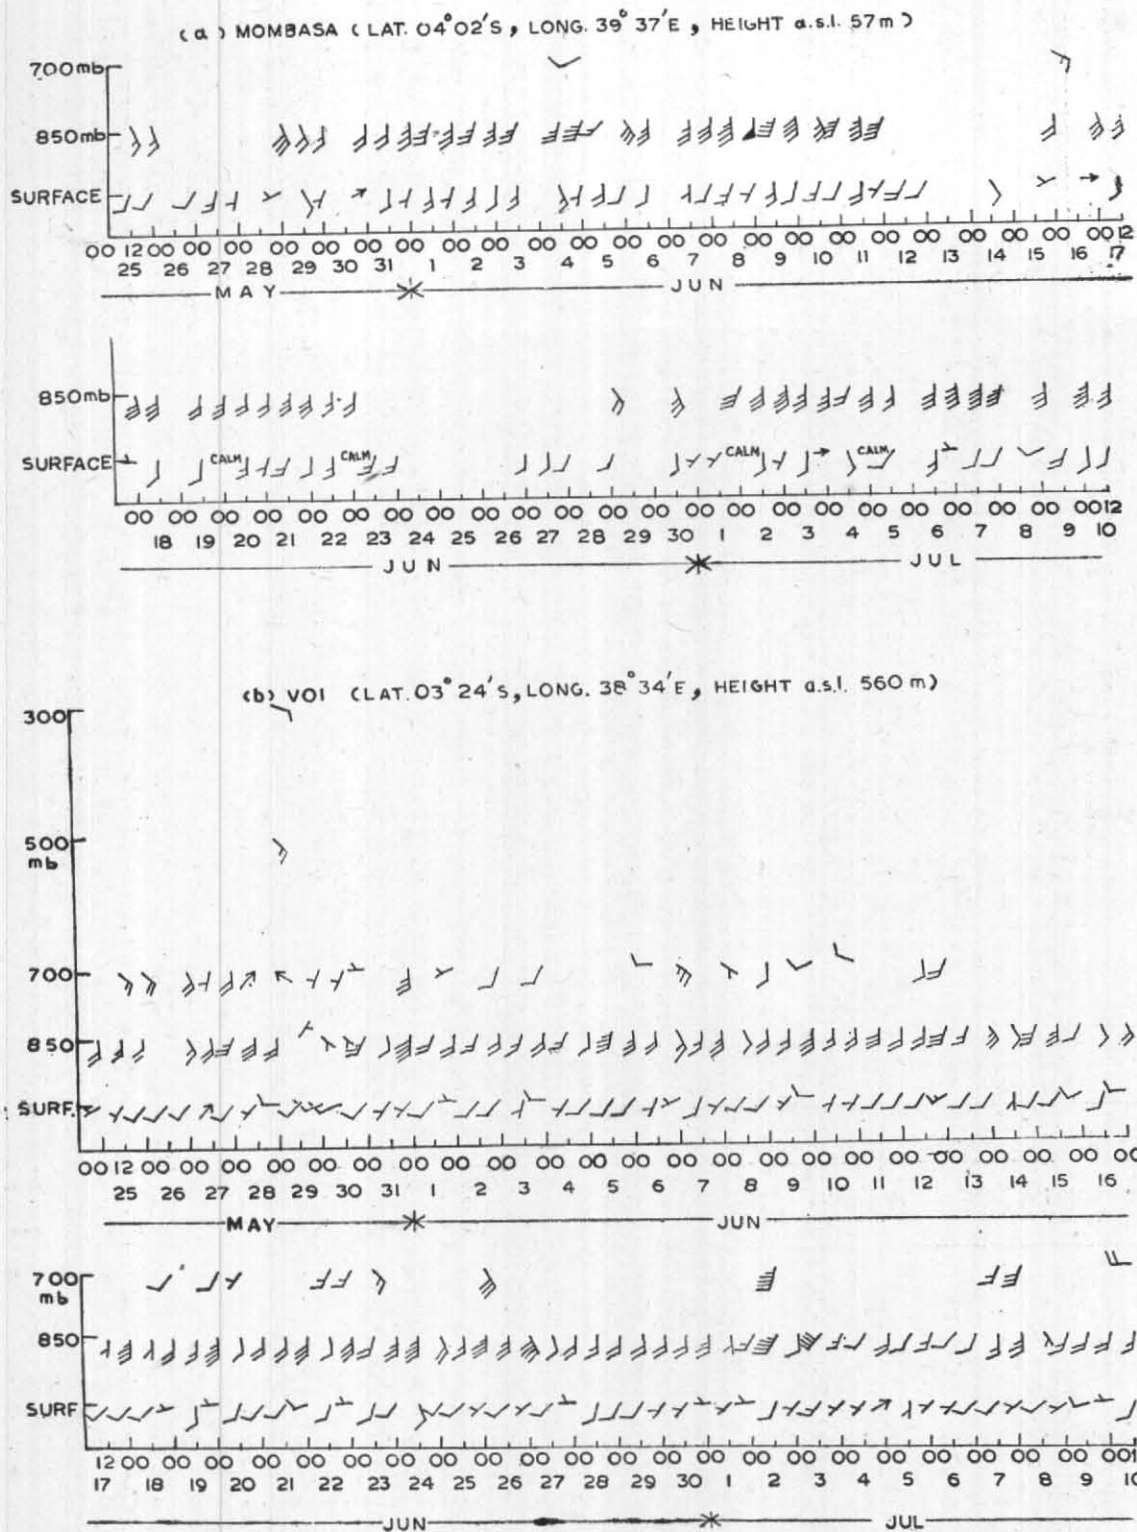 (a) MOMBASA (LAT. 04°02'S, LONG. 39°37'E, HEIGHT a.s.l. 57m)
700mb
850mb
SURFACE
00 12 00 00 00 00 00 00 00 00 00 00 00 00 00 00 00 00 00 00 00 00 00 00 00 12
25 26 27 28 29 30 31 1 2 3 4 5 6 7 8 9 10 11 12 13 14 15 16 17
MAY JUN
850mb
SURFACE
CALM CALM CALM CALM
00 00 00 00 00 00 00 00 00 00 00 00 00 00 00 00 00 00 00 00 00 00 00 12
18 19 20 21 22 23 24 25 26 27 28 29 30 1 2 3 4 5 6 7 8 9 10
JUN JUL
(b) VOI (LAT. 03°24'S, LONG. 38°34'E, HEIGHT a.s.l. 560 m)
300
500
mb
700
850
SURF.
00 12 00 00 00 00 00 00 00 00 00 00 00 00 00 00 00 00 00 00 00 00 00 00 00
25 26 27 28 29 30 31 1 2 3 4 5 6 7 8 9 10 11 12 13 14 15 16
MAY JUN
700
mb
850
SURF
12 00 00 00 00 00 00 00 00 00 00 00 00 00 00 00 00 00 00 00 00 00 00 00
17 18 19 20 21 22 23 24 25 26 27 28 29 30 1 2 3 4 5 6 7 8 9
JUN JUL